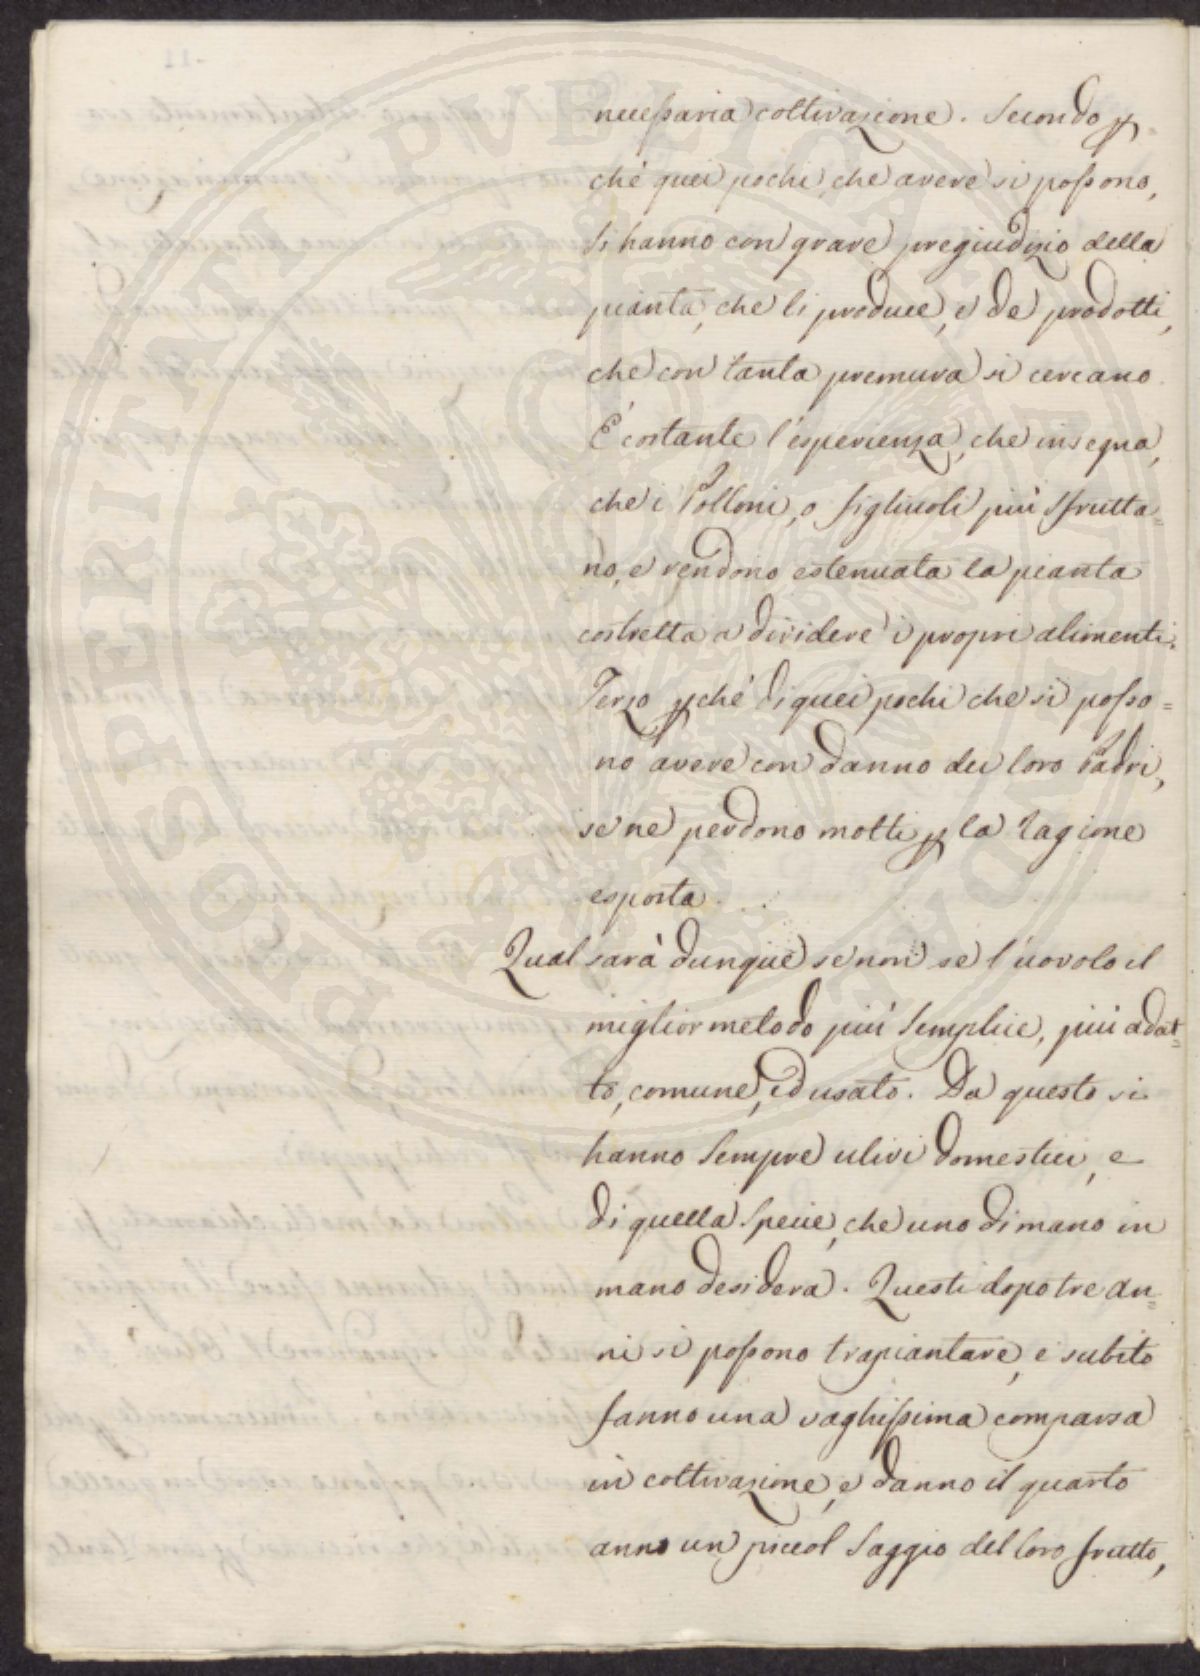 necessaria coltivazione. Secondo p
chè quei pochi, che avere si possono,
si hanno con grave pregiudizio della
pianta, che li produce, e de' prodotti,
che con tanta premura si cercano.
È costante l'esperienza, che insegna,
che i Polloni, o figliuoli più sfrutta=
no, e rendono estenuata la pianta
costretta a dividere i propri alimenti.
Terzo pchè di quei pochi che si posso=
no avere con danno dei loro Padri,
se ne perdono molti p la ragione
esposta.
Qual sarà dunque se non se l'uovolo il
miglior metodo più semplice, più adat=
to, comune, ed usato. Da questo si
hanno sempre ulivi domestici, e
di quella specie, che uno di mano in
mano desidera. Questi dopo tre an=
ni si possono trapiantare, e subito
fanno una vaghissima comparsa
in coltivazione, e danno il quarto
anno un piccol saggio del loro frutto,
PVBLICAE
PROSPERITATI